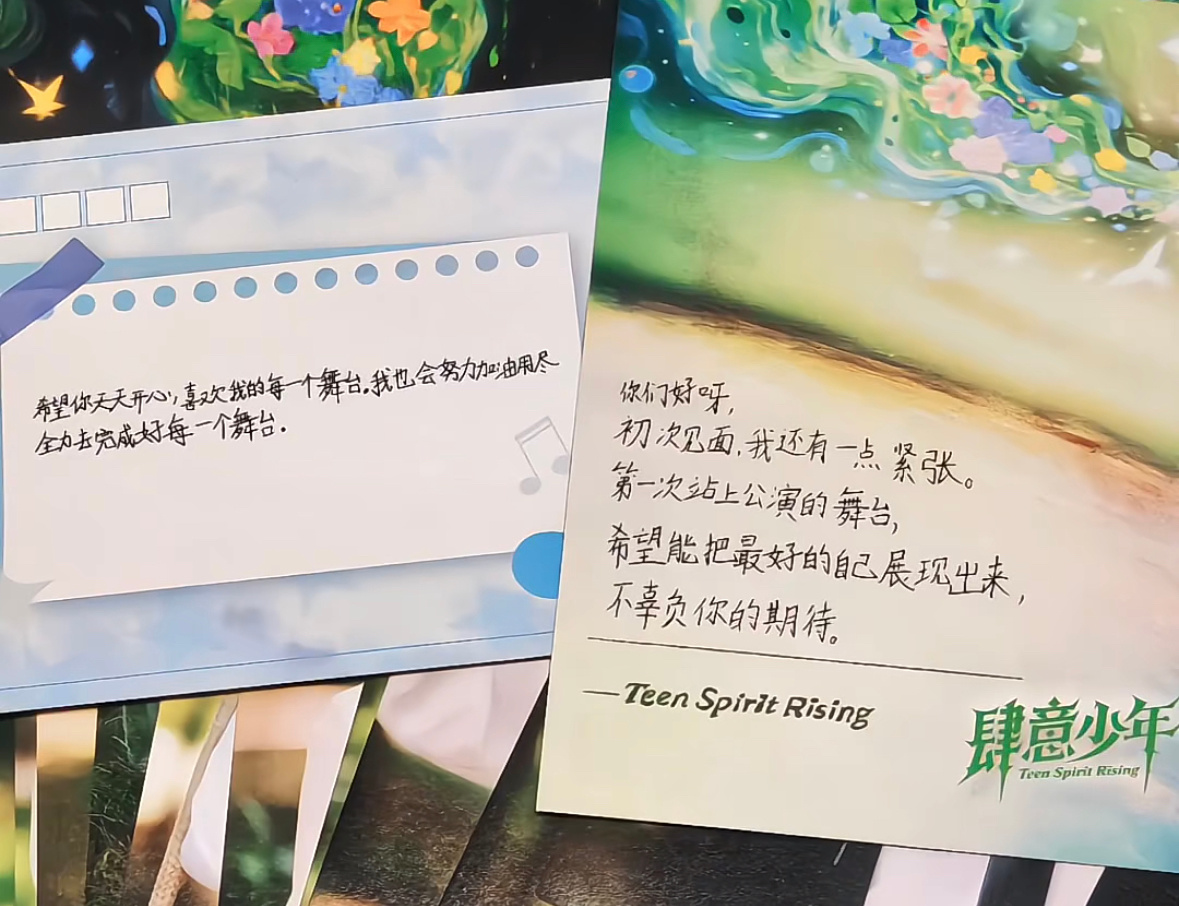 希望你天天开心,喜欢我的每一个舞台.我也会努力加油用尽
全力去完成好每一个舞台.
你们好呀,
初次见面,我还有一点紧张。
第一次站上公演的舞台,
希望能把最好的自己展现出来,
不辜负你的期待。
—Teen Spirit Rising
肆意少年
Teen Spirit Rising